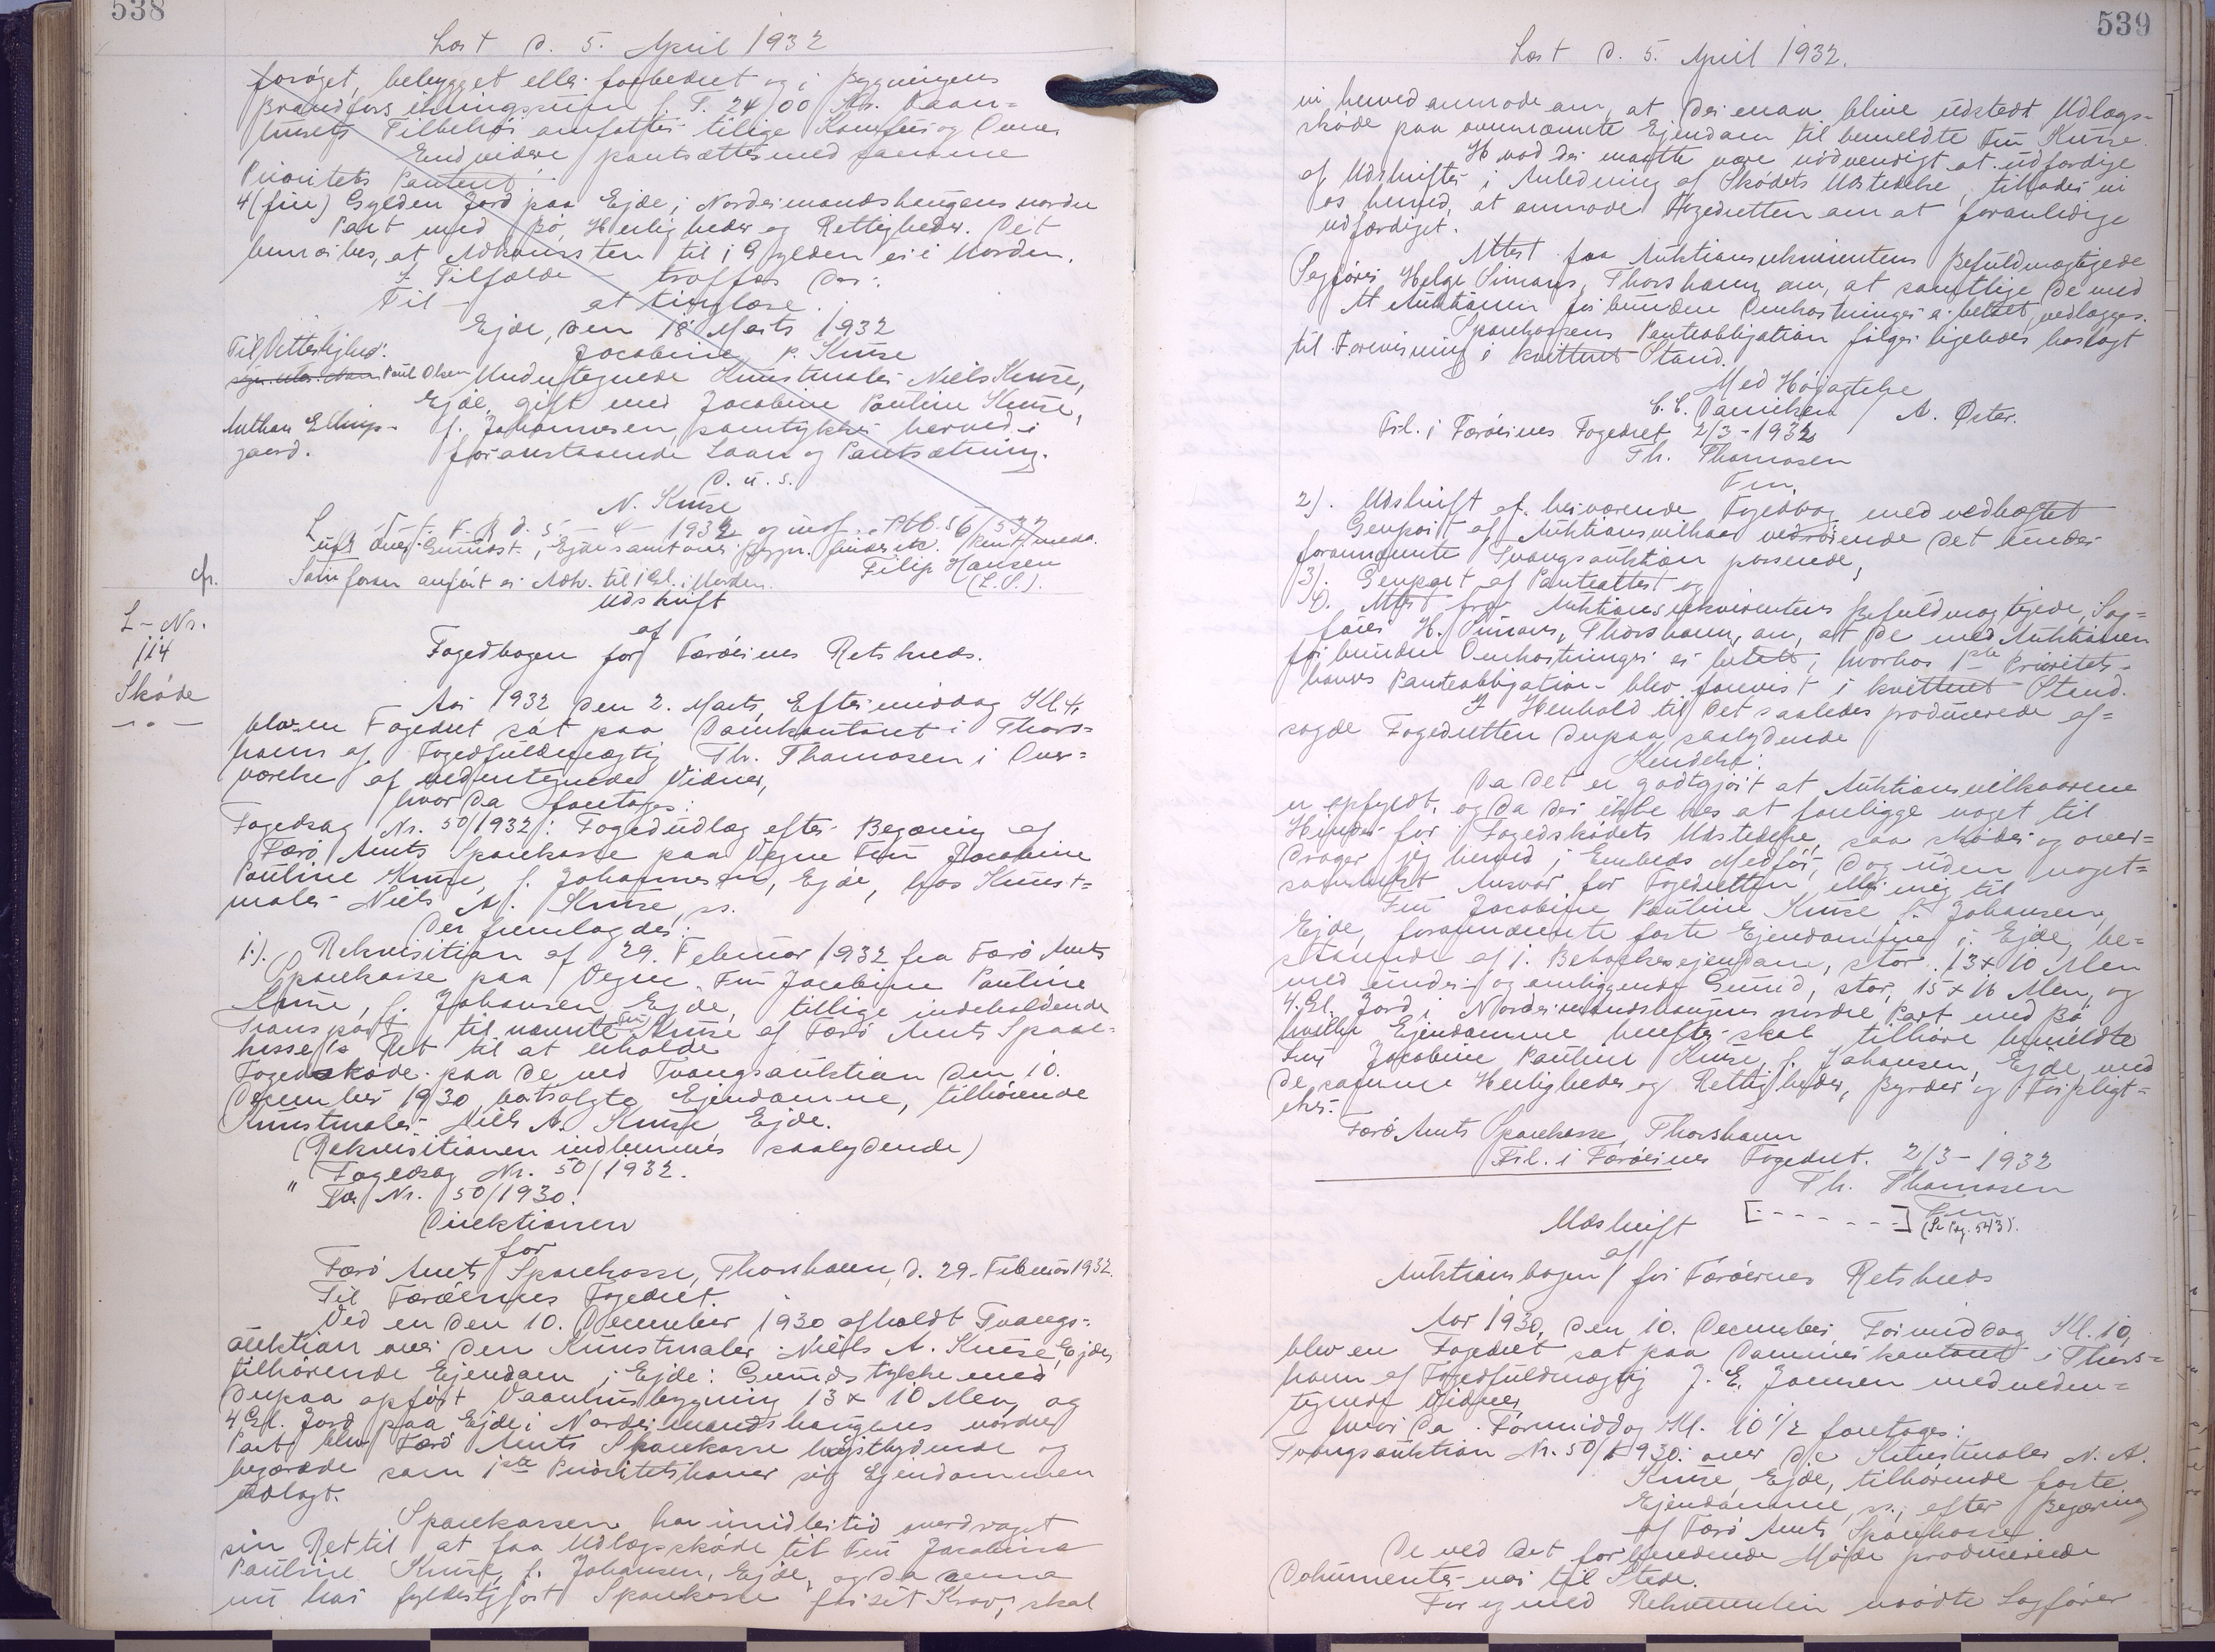 538
Læst d. 5. April 1932
forøget, bebygget eller forbedret og i Bygningens
Brandforsikringssum f. T. 2400 Kr. Vaan=
husets Tilbehør omfatter tillige Komfur og Ovne.
Endvidere pantsættes med samme
Prioritets Panteret:
4 (fire) Gylden Jord paa Ejde, i Nordeimandshaugens nordre
Part med Bø, Herligheder og Rettigheder. Det
bemærkes, at Adkomsten til 1 Gylden er i Orden.
I Tilfælde - træffes der:
Til - at tinglæse.
Ejde, den 18' Marts 1932
Jacobine P. Kruse
Til Vitterlighed:
Poul Olsen
Undertegnede Kunstmaler Niels Kruse,
Ejde, gift med Jacobine Pauline Kruse,
f. Johannesen, samtykker herved i
foranstaaende Laan og Pantsætning.
D. u. s.
N. Kruse
L d. 5 - 4 - 1932 og indf. Ptb. 56/537
Filip Hansen
Som foran anført er Adk. til 1 Gl. i Orden.
(L. S.).
cfr.
L-Nr.
114
Skøde
Udskrift
af
Fogedbogen for Færøernes Retskreds.
Aar 1932 den 2. Marts, Eftermiddag Kl. 4,
blev en Fogedret sat paa Domkontoret i Thors=
havn af Fogedfuldmægtig Th. Thomasen i Over=
værelse af undertegnede Vidner,
hvor da foretoges:
Fogedsag Nr. 50/1932: Fogedudlæg efter Begæring af
Færø Amts Sparekasse paa Vegne Fru Jacobine
Pauline Kruse, f. Johannesen, Ejde, hos Kunst=
maler Niels A. Kruse, ss.
Der fremlagdes:
1.). Rekvisition af 29. Februar 1932 fra Færø Amts
Sparekasse paa Vegne Fru Jacobine Pauline
Kruse, f. Johansen, Ejde, tillige indeholdende
Transport til nævnte Fru Kruse af Færø Amts Spare-
kasse's Ret til at erholde
Fogedskøde paa de ved Tvangsauktion den 10.
December 1930 bortsolgte Ejendomme, tilhørende
Kunstmaler Niels A. Kruse Ejde.
(Rekvisitionen indlemmes saalydende)
" Fogedsag Nr. 50/1932.
Tva Nr. 50/1930.
Direktionen
for
Færø Amts Sparekasse, Thorshavn, d. 29. Februar 1932.
Til Færøernes Fogedret.
Ved en den 10. December 1930 afholdt Tvangs-
auktion over den Kunstmaler Niels A. Kruse, Ejde,
tilhørende Ejendom i Ejde: Grundstykke med
derpaa opført Vaanhusbygning 13 x 10 Alen, og
4 Gl. Jord paa Ejde i Nordeimandshaugens nordre
Part blev Færø Amts Sparekasse højstbydende og
begærede som 1ste Prioritetshaver sig Ejendommen
udlagt.
Sparekassen har imidlertid overdraget
sin Ret til at faa Udlægsskøde til Fru Jacobine
Pauline Kruse, f. Johansen, Ejde, og da denne
nu har fyldestgjort Sparekasse for sit Krav, skal
539
Læst d. 5. April 1932.
vi herved anmode om, at der maa blive udstedt Udlægs=
skøde paa ovennævnte Ejendom til bemeldte Fru Kruse.
Hvad der maatte være nødvendigt at udfærdige
af Udskrifter i Anledning af Skødets Udstedelse, tillader vi
os herved, at anmode Fogedretten om at foranledige
udfærdiget.
Attest fra Auktionsrekvirentens Befuldmægtigede
Sagfører Helge Simars, Thorshavn, om, at samtlige de med
Auktionen forbundne Omkostninger er betalt, vedlægges.
Sparekassens Panteobligation følger ligeledes hoslagt
til Forevisning i kvitteret Stand.
Med Højagtelse
C. C. Danielsen / A. Øster.
Frl. i Færøernes Fogedret 2/3-1932
Th. Thomasen
Fm.
2). Udskrift af herværende Fogedbog med vedhæftet
Genpart af Auktionsvilkaar vedrørende det under
forannævnte Tvangsauktion passerede,
3). Genpart af Panteattest og
4). Attest fra Auktionsrekvirentens Befuldmægtigede, Sag=
fører H. Simars, Thorshavn, om, at de med Auktionen
forbundne Omkostninger er betalt, hvorhos 1ste Prioritets-
havers Panteobligation blev forevist i kvitteret Stand.
I Henhold til det saaledes producerede af=
sagde Fogedretten derpaa saalydende
Kendelse:
Da det er godtgjort at Auktionsvilkaarene
er opfyldt, og da der ikke ses at foreligge noget til
Hinder for Fogedskødets Udstedelse, saa skøder og over=
drager jeg herved i Embeds Medfør, dog uden noget=
somhelst Ansvar for Fogedretten eller mig til
Fru Jacobine Pauline Kruse f. Johansen,
Ejde, forannævnte faste Ejendomme i Ejde, be=
staaende af 1. Beboelsesejendom, stor 13 x 10 Alen
med under- og omliggende Grund, stor 15 x 16 Alen, og
4 Gl. Jord i Nordeimandshaugens nordre Part med Bø
hvilke Ejendomme herefter skal tilhøre bemeldte
Fru Jacobine Pauline Kruse, f. Johansen, Ejde, med
de samme Herligheder og Rettigheder, Byrder og Forpligt=
elser.
Færø Amts Sparekasse, Thorshavn
Frl. i Færøernes Fogedret. 2/3-1932
Th. Thomasen
Fm
[- - - - - -] (Se Pag. 543).
Udskrift
af
Auktionsbogen for Færøernes Retskreds
Aar 1930, den 10. December, Formiddag Kl. 10,
blev en Fogedret sat paa Dommerkontoret i Thors=
havn af Fogedfuldmægtig J. E. Joensen med under=
tegnede Vidner,
hvor da Formiddag Kl. 10 1/2 foretoges:
Tvangsauktion Nr. 50/1930: over de Kunstmaler N. A.
Kruse, Ejde, tilhørende faste
Ejendomme, ss., efter Begæring
af Færø Amts Sparekasse.
De ved det forberedende Møde producerede
Dokumenter var til Stede.
For og med Rekvirenten mødte Sagfører